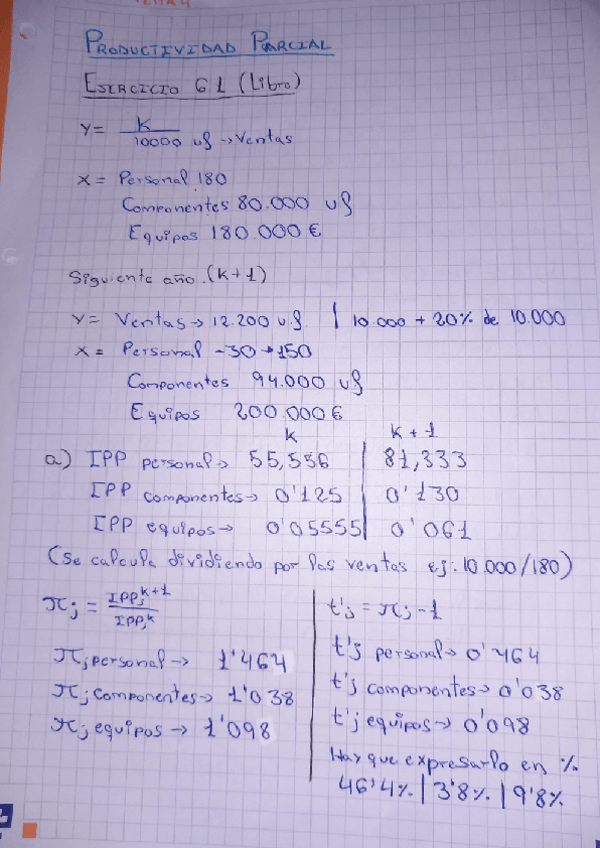 TEMA 4
PRODUCTIVIDAD PARCIAL
EJERCICIO 6 1 (Libro)
Y= K / 10000 uf → Ventas
X = Personal 180
Componentes 80.000 uf
Equipos 180.000 €
Siguiente año (k+1)
Y= Ventas → 12.200 u.f. | 10.000 + 20% de 10.000
X = Personal -30 → 150
Componentes 94.000 uf
Equipos 200.000 €
K | K + 1
a) IPP personal → 55,556 | 81,333
IPP componentes → 0'125 | 0'130
IPP equipos → 0'05555 | 0'061
(Se calcula dividiendo por las ventas ej: 10.000/180)
πj = IPPj^k+1 / IPPj^k
πj personal → 1'464
πj componentes → 1'038
πj equipos → 1'098
t'j = πj - 1
t'j personal → 0'464
t'j componentes → 0'038
t'j equipos → 0'098
Hay que expresarlo en %
46'4% | 3'8% | 9'8%